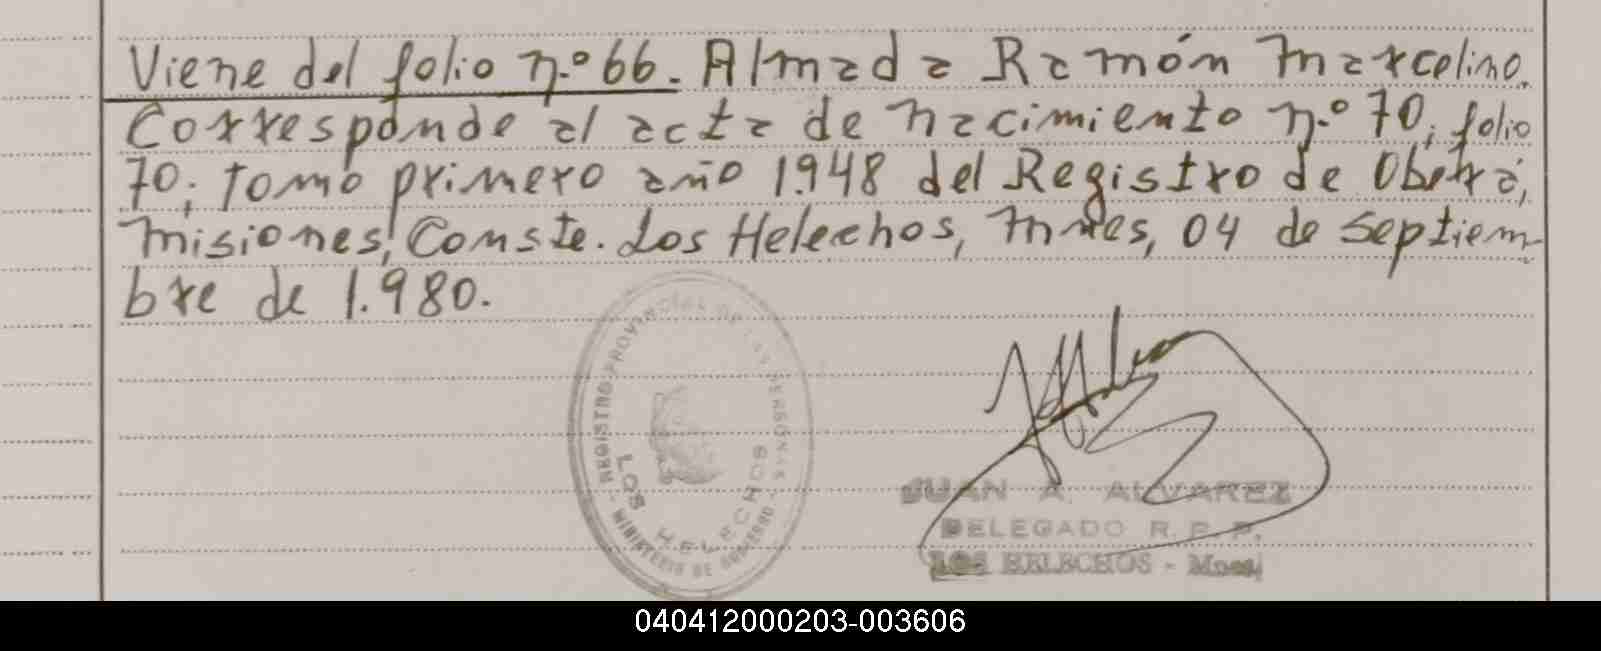 Viene del folio n.º 66. Almada Ramón Marcelino.
Corresponde al acta de nacimiento n.º 70; folio
70; tomo primero año 1.948 del Registro de Oberá,
Misiones, Conste. Los Helechos, Mnes, 04 de Septiem-
bre de 1.980.
REGISTRO PROVINCIAL DE LAS PERSONAS
LOS HELECHOS
- MINISTERIO DE GOBIERNO -
JUAN A. ALVAREZ
DELEGADO R. P. P.
LOS HELECHOS - Mnes
040412000203-003606